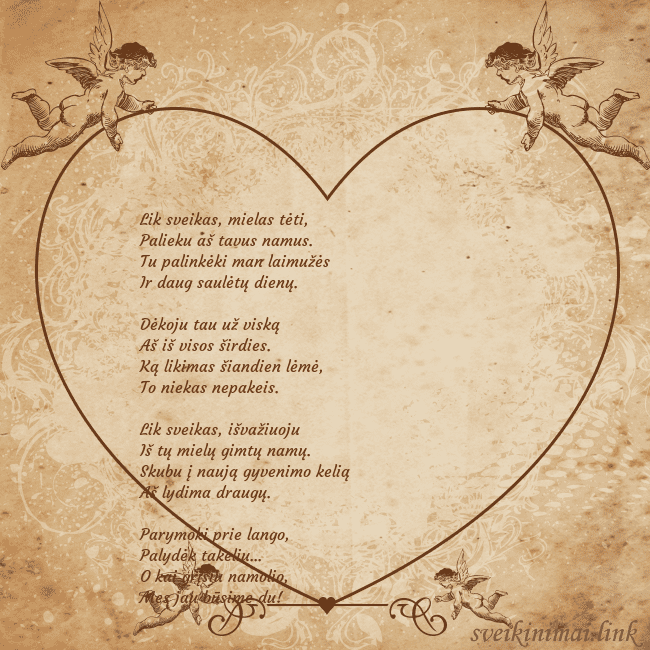 Lik sveikas, mielas tėti,
Palieku aš tavus namus.
Tu palinkėki man laimužės
Ir daug saulėtų dienų.
Dėkoju tau už viską
Aš iš visos širdies.
Ką likimas šiandien lėmė,
To niekas nepakeis.
Lik sveikas, išvažiuoju
Iš tų mielų gimtų namų.
Skubu į naują gyvenimo kelią
Aš lydima draugų.
Parymoki prie lango,
Palydėk takeliu...
O kai grįšiu namolio,
Mes jau būsime du!
sveikinimai.link